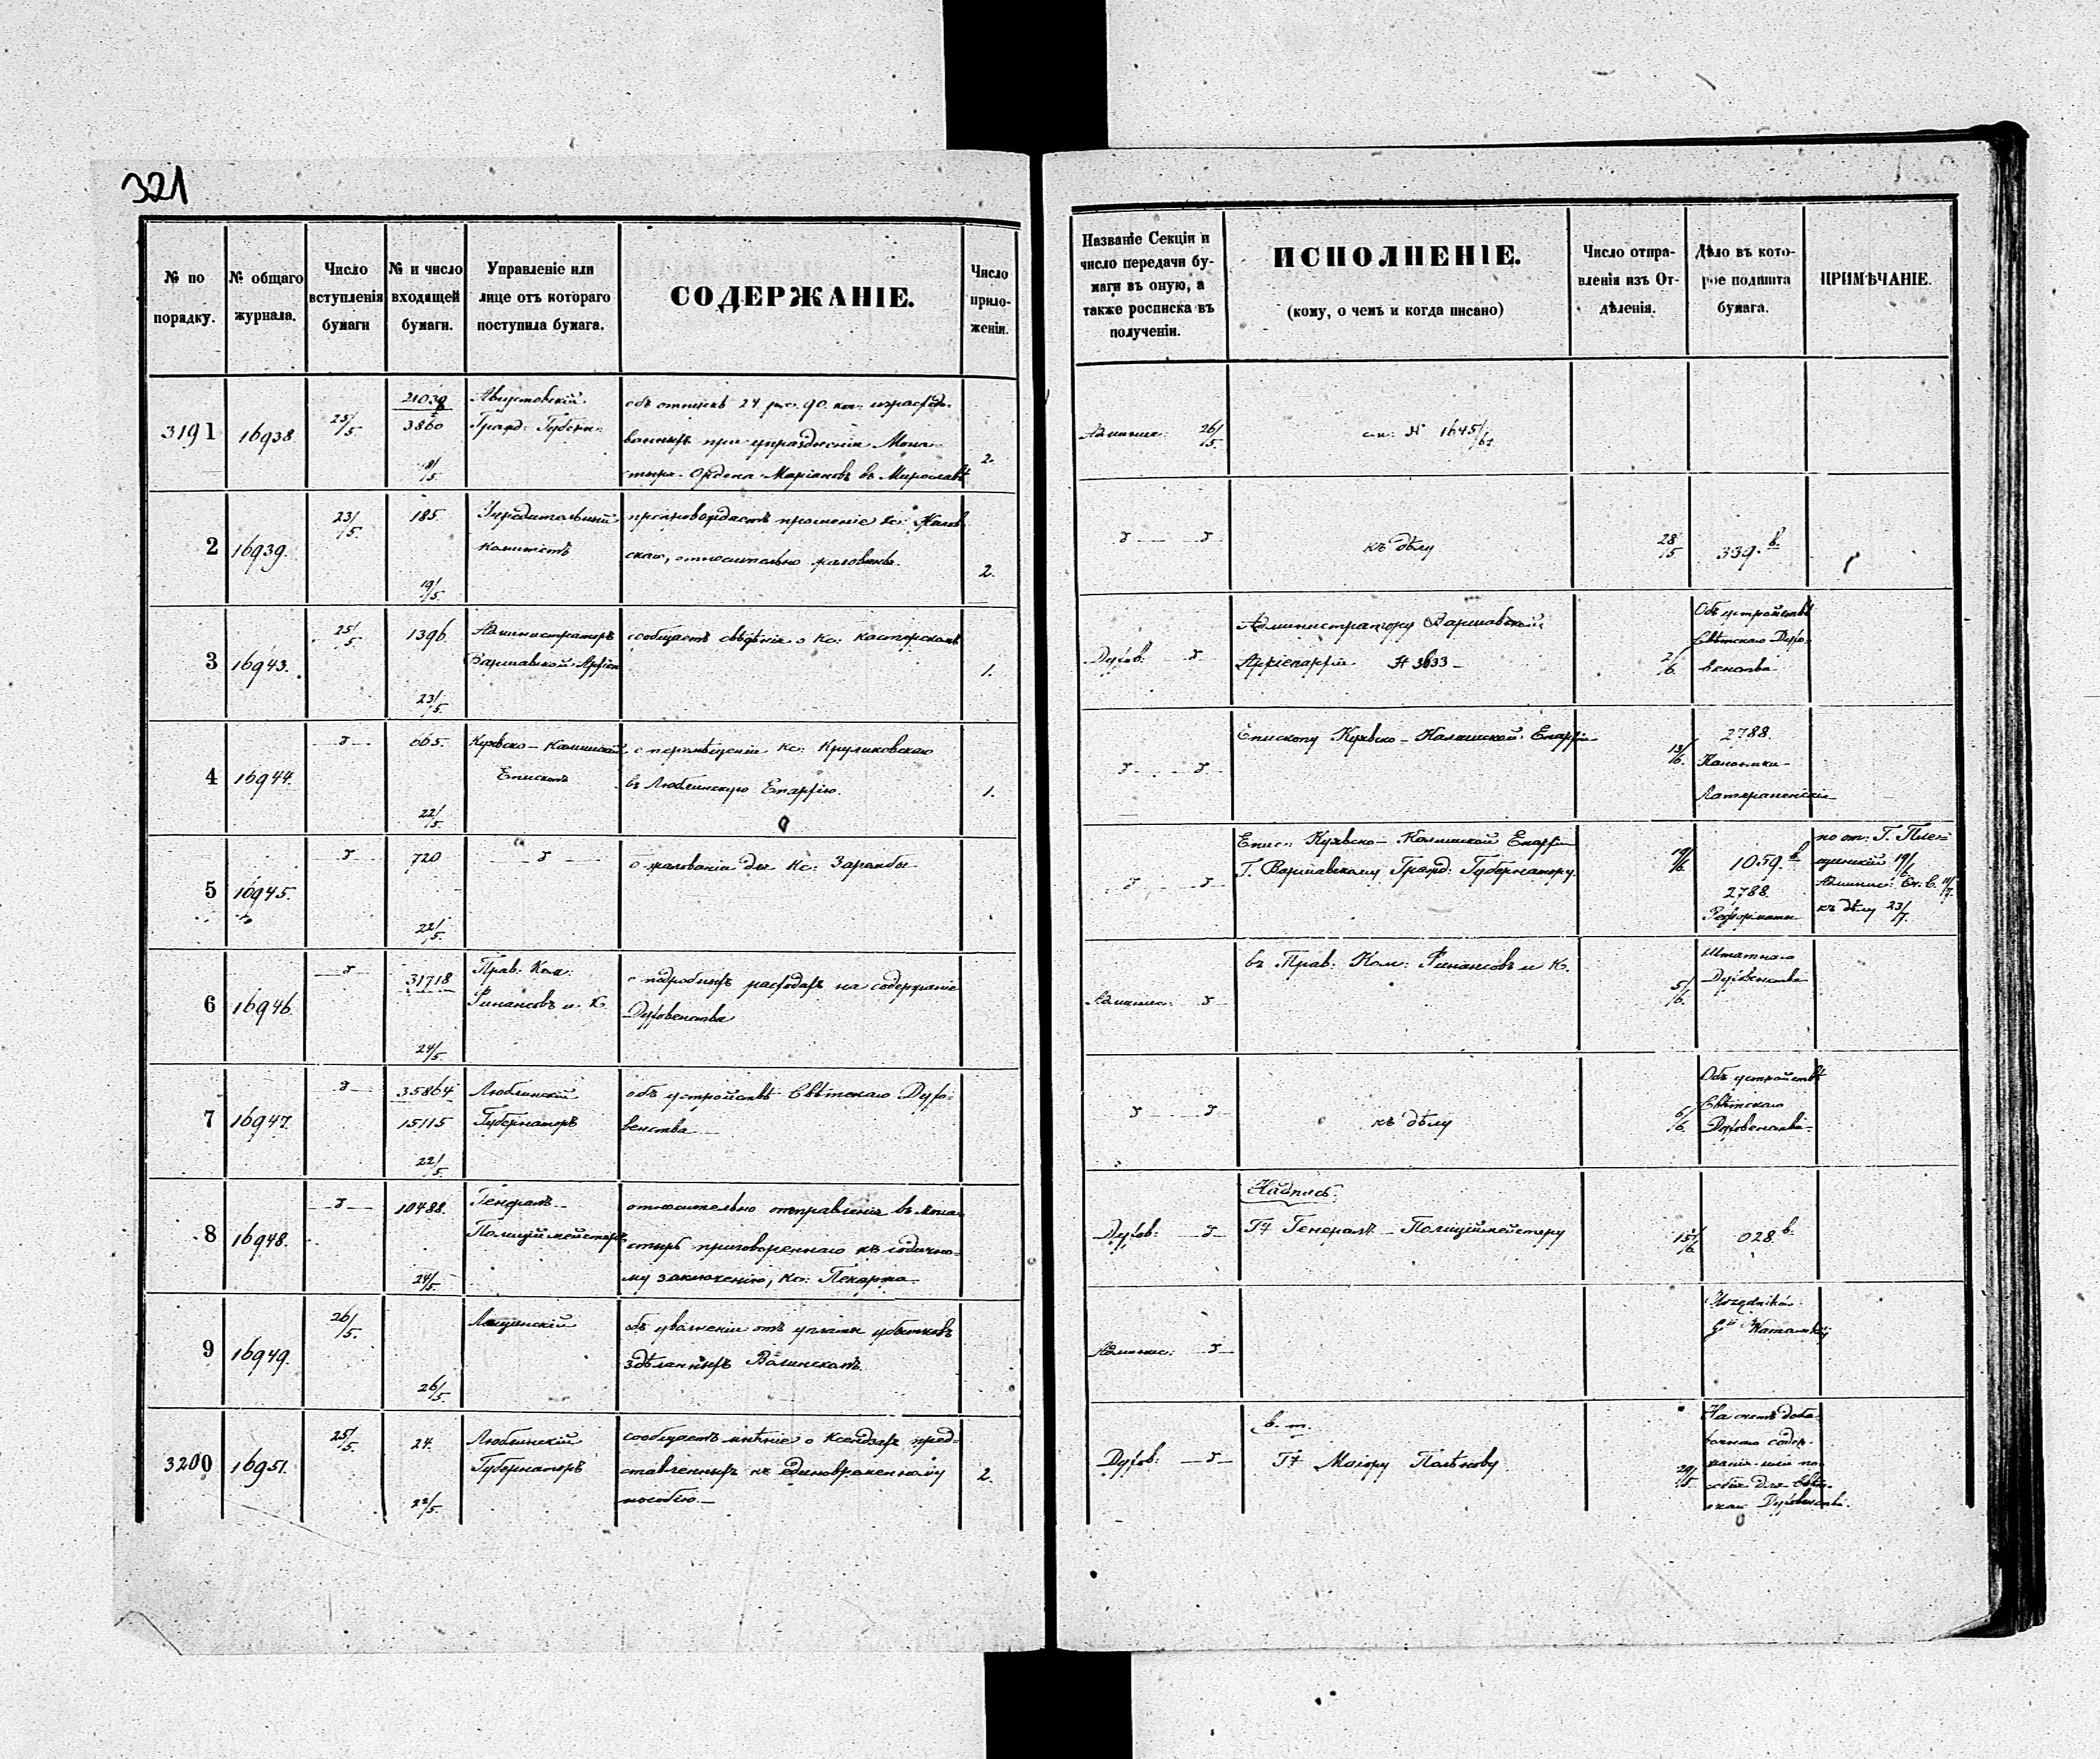 321
№ по порядку.
№ общаго журнала.
Число вступленія бумаги
№ и число входящей бумаги.
Управленіе или лице отъ котораго поступила бумага.
СОДЕРЖАНІЕ.
Число прило-
женій.
Названіе Секціи и
число передачи бу-
маги въ оную, а
также росписка въ
полученіи.
ИСПОЛНЕНІЕ.
(кому, о чемъ и когда писано)
Число отпра-
вленія изъ От-
дѣленія.
Дѣло въ кото-
рое подшита
бумага.
ПРИМѢЧАНІЕ.
3191 16938 25/5 3860
Августовскій
Гражд: Губерн:
объ отпускѣ 24 рус. 90 коп. израсходо-
ванныхъ при упраздненіи Мона-
стыря Ордена Маріановъ въ Мирославѣ
2.
26/5
№ 1645/67
2 16939. 23/5 185. 19/5
Учредительный
Комитетъ
препровождаетъ прошеніе Кс:
относительно жалованья.
2.
къ дѣлу
28/5
339. в.
3 16943. 25/5 1396. 23/5
Администраторъ
Варшавской Архіеп
сообщаетъ свѣдѣнія о Кс: Касперскомъ
1.
Духов:
Администратору Варшавской
Архіепархіи № 3633
2/6
Объ устройствѣ
Свѣтскаго Духо-
венства
4 16944. 665. 22/5
Куявско-Калишскій
Епископъ
о перемѣщеніи Кс: Круликовскаго
въ Люблинскую Епархію.
1.
Епископу Куявско-Калишской Епархіи
13/6.
2788.
Каноники
Латеранскіе
5 16945. 720 22/5
о жалованіи для Кс: Зарембы
Епис: Куявско-Калишской Епархіи
Г. Варшавскому Гражд: Губернатору.
19/6
1059. в
2788
Реформаты
къ дѣлу 23/7.
6 16946. 31718 24/5
Прав: Ком:
Финансовъ и К.
о подробныхъ расходахъ на содержаніе
Духовенства
въ Прав: Ком: Финансовъ и К.
5/6.
Штатнаго
Духовенства
7 16947. 35864 15115 22/5
Люблинскій
Губернаторъ
объ устройствѣ Свѣтскаго Духо-
венства
къ дѣлу
6/6.
Объ устройствѣ
Свѣтскаго
Духовенства
8 16948. 10488. 24/5
Генералъ-
Полиціймейстеръ
относительно отправленія въ мона-
стырь приговореннаго къ годично-
му заключенію, Кс: Пекарта.
Духов:
Надпись.
Генералъ-Полиціймейстеру
15/6.
028. в.
9 16949. 26/5. 26/5
объ увольненіи отъ уплаты убытковъ
здѣланныхъ Волинскомъ.
3200 16951. 25/5. 24. 22/5
Люблинскій
Губернаторъ
сообщаетъ мнѣніе о Ксендзахъ пред-
ставленныхъ къ единовременному
пособію.
2.
Духов:
в. т.
Маіору Полѣнову
29/5
На счетъ доба-
вочнаго содер-
жанія или по-
собія для Свѣт-
скаго Духовенства.